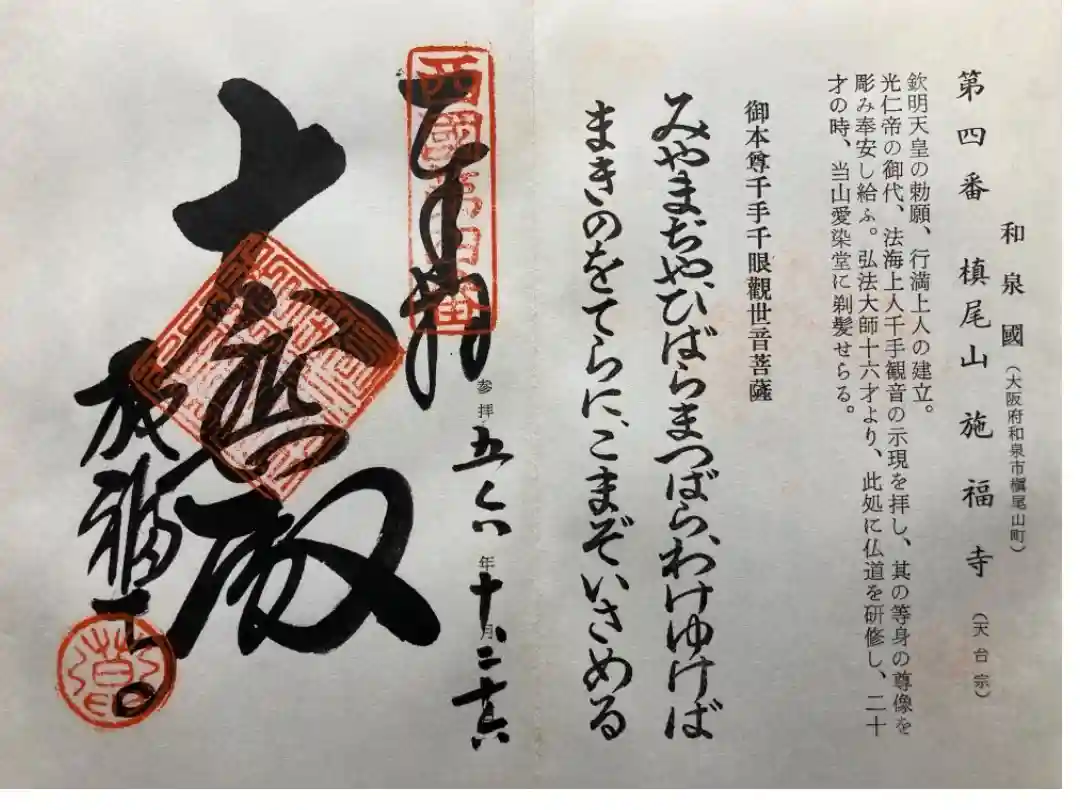 和泉國(大阪府和泉市槇尾山町)
第四番 槙尾山施福寺(天台宗)
欽明天皇の勅願、行満上人の建立。
光仁帝の御代、法海上人千手観音の示現を拝し、其の等身の尊像を
彫み奉安し給ふ。弘法大師十六才より、此処に仏道を研修し、二十
才の時、当山愛染堂に剃髪せらる。
御本尊千手千眼觀世音菩薩
みやまぢや、ひばらまつばら、わけゆけば
まきのをてらに、こまぞいさめる
西國第四番
参拝 五六年十月二十六
大悲殿
施福寺